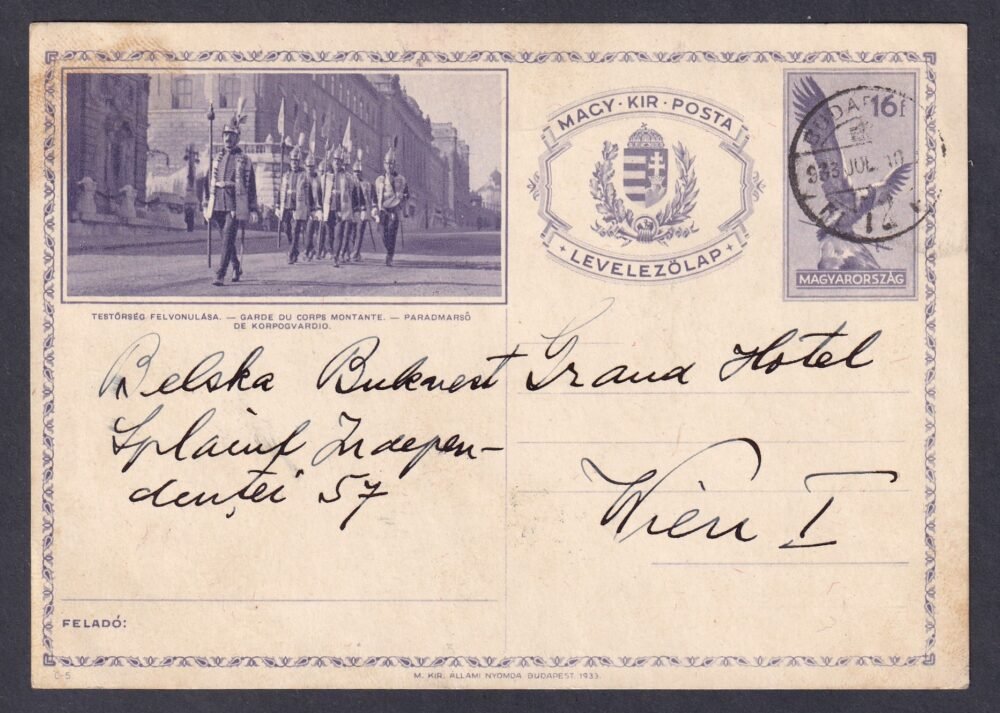 MAGY·KIR·POSTA
LEVELEZŐLAP
16f
MAGYARORSZÁG
BUDAPE
933 JUL
72
TESTŐRSÉG FELVONULÁSA. — GARDE DU CORPS MONTANTE. — PARADMARŜO
DE KORPOGVARDIO.
Belska Bukarest
Splaiul Indepen-
denței 57
Grand Hotel
Wien I
FELADÓ:
M. KIR. ÁLLAMI NYOMDA BUDAPEST, 1933.